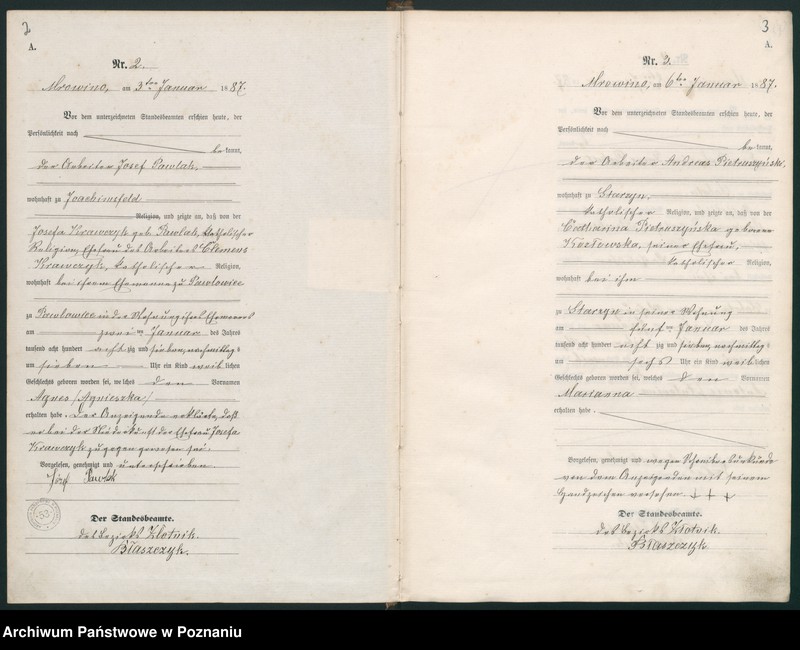 2
A.
Nr. 2.
Mrowino, am 3ten Januar 1887.
Vor dem unterzeichneten Standesbeamten erschien heute, der
Persönlichkeit nach
bekannt,
der Arbeiter Josef Pawlak,
wohnhaft zu Joachimsfeld
Religion, und zeigte an, daß von der
Josefa Krawczyk geb. Pawlak, katholischer
Religion, Ehefrau des Arbeiters Clemens
Krawczyk, katholischer Religion,
wohnhaft bei ihrem Ehemanne zu Pawlowice
zu Pawlowice in der Wohnung ihres Ehemannes
am zwei ten Januar des Jahres
tausend acht hundert acht zig und sieben nachmittags
um sieben Uhr ein Kind weiblichen
Geschlechts geboren worden sei, welches den Vornamen
Agnes /Agnieszka/
erhalten habe. Der Anzeigende erklärte, daß
er bei der Niederkunft der Ehefrau Josefa
Krawczyk zugegen gewesen sei.
Vorgelesen, genehmigt und unterschrieben
Józef Pawlak
53
Der Standesbeamte.
des Bezirks Zlotnik.
Błaszczyk.
3
A.
Nr. 3.
Mrowino, am 6ten Januar 1887.
Vor dem unterzeichneten Standesbeamten erschien heute, der
Persönlichkeit nach
bekannt,
der Arbeiter Andreas Pietruszyński,
wohnhaft zu Starzyn,
katholischer Religion, und zeigte an, daß von der
Catharina Pietruszyńska geborene
Kozłowska, seiner Ehefrau,
katholischer Religion,
wohnhaft bei ihm
zu Starzyn in seiner Wohnung
am fünf ten Januar des Jahres
tausend acht hundert acht zig und sieben nachmittags
um sechs Uhr ein Kind weiblichen
Geschlechts geboren worden sei, welches den Vornamen
Marianna
erhalten habe.
Vorgelesen, genehmigt und wegen Schreibensunkunde
von dem Anzeigenden mit seinem
Handzeichen versehen + + +
Der Standesbeamte.
des Bezirks Zlotnik.
Błaszczyk.
Archiwum Państwowe w Poznaniu